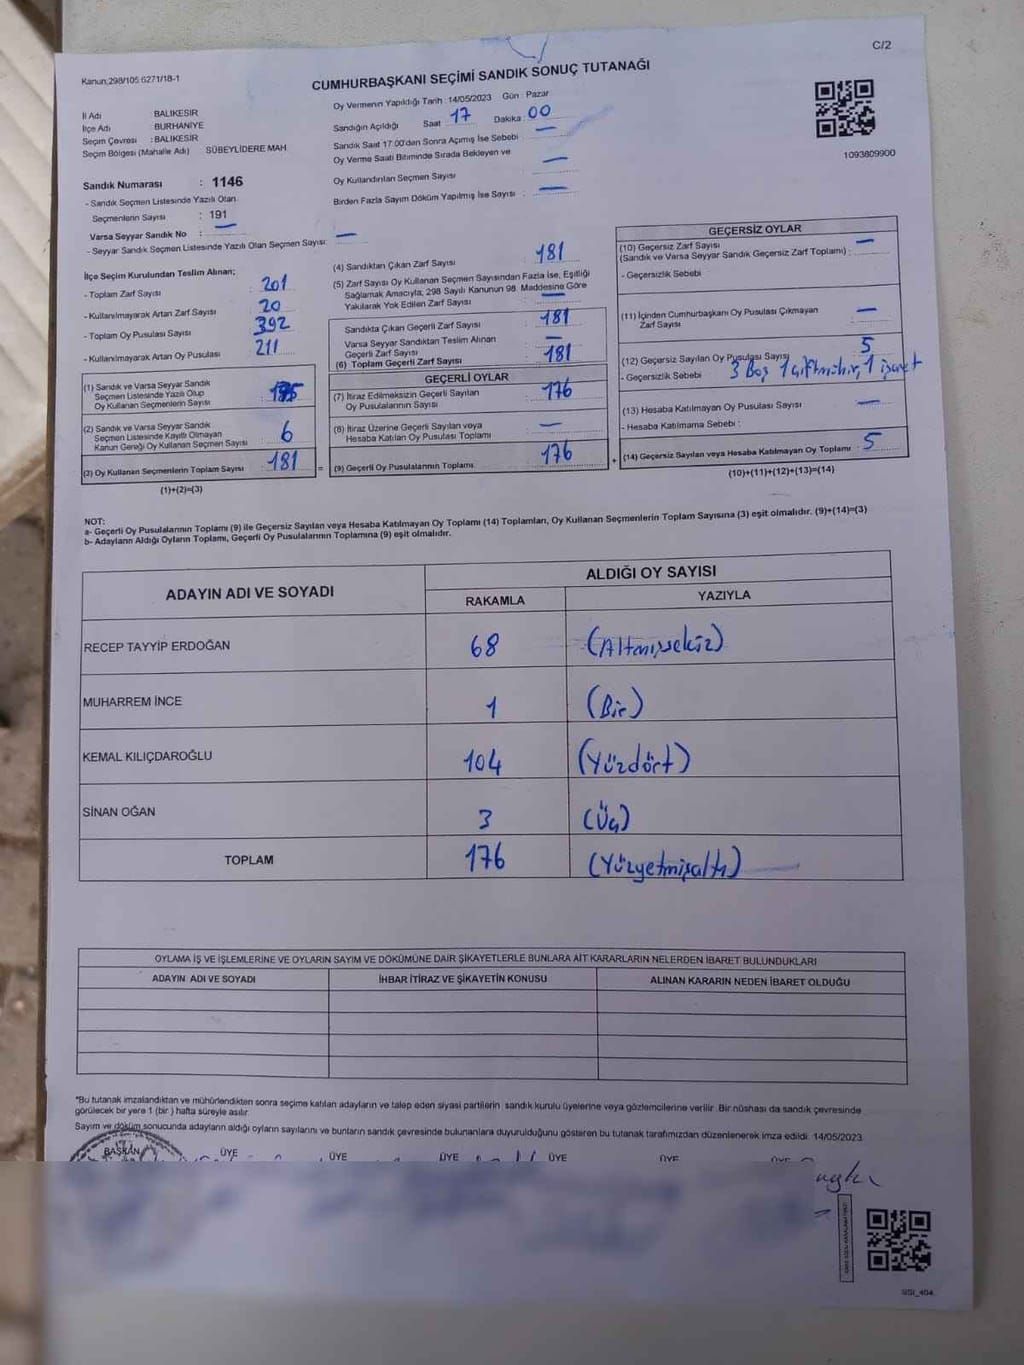 C/2
Kanun,298/105 6271/18-1
CUMHURBAŞKANI SEÇİMİ SANDIK SONUÇ TUTANAĞI
İl Adı BALIKESİR
İlçe Adı BURHANİYE
Seçim Çevresi : BALIKESİR
Seçim Bölgesi (Mahalle Adı) SÜBEYLİDERE MAH
Oy Vermenin Yapıldığı Tarih : 14/05/2023 Gün : Pazar
Sandığın Açıldığı Saat 17 Dakika 00
Sandık Saat 17:00'den Sonra Açımış İse Sebebi : —
Oy Verme Saati Bitiminde Sırada Bekleyen ve
Oy Kullandırılan Seçmen Sayısı : —
Birden Fazla Sayım Döküm Yapılmış İse Sayısı : —
1093809900
Sandık Numarası : 1146
- Sandık Seçmen Listesinde Yazılı Olan
Seçmenlerin Sayısı : 191
Varsa Seyyar Sandık No : —
- Seyyar Sandık Seçmen Listesinde Yazılı Olan Seçmen Sayısı: —
İlçe Seçim Kurulundan Teslim Alınan;
- Toplam Zarf Sayısı : 201
- Kullanılmayarak Artan Zarf Sayısı : 20
- Toplam Oy Pusulası Sayısı : 392
- Kullanılmayarak Artan Oy Pusulası : 211
(1) Sandık ve Varsa Seyyar Sandık
Seçmen Listesinde Yazılı Olup
Oy Kullanan Seçmenlerin Sayısı : 175
(2) Sandık ve Varsa Seyyar Sandık
Seçmen Listesinde Kayıtlı Olmayan
Kanun Gereği Oy Kullanan Seçmen Sayısı : 6
(3) Oy Kullanan Seçmenlerin Toplam Sayısı : 181
(1)+(2)=(3)
(4) Sandıktan Çıkan Zarf Sayısı : 181
(5) Zarf Sayısı Oy Kullanan Seçmen Sayısından Fazla İse, Eşitliği
Sağlamak Amacıyla, 298 Sayılı Kanunun 98. Maddesine Göre
Yakılarak Yok Edilen Zarf Sayısı : —
Sandıkta Çıkan Geçerli Zarf Sayısı : 181
Varsa Seyyar Sandıktan Teslim Alınan
Geçerli Zarf Sayısı : —
(6) Toplam Geçerli Zarf Sayısı : 181
GEÇERLİ OYLAR
(7) İtiraz Edilmeksizin Geçerli Sayılan
Oy Pusulalarının Sayısı : 176
(8) İtiraz Üzerine Geçerli Sayılan veya
Hesaba Katılan Oy Pusulası Toplamı : —
= (9) Geçerli Oy Pusulalarının Toplamı : 176
GEÇERSİZ OYLAR
(10) Geçersiz Zarf Sayısı
(Sandık ve Varsa Seyyar Sandık Geçersiz Zarf Toplamı) : —
- Geçersizlik Sebebi
(11) İçinden Cumhurbaşkanı Oy Pusulası Çıkmayan
Zarf Sayısı : —
(12) Geçersiz Sayılan Oy Pusulası Sayısı : 5
- Geçersizlik Sebebi 3 Boş 1 çift mühür, 1 işaret
(13) Hesaba Katılmayan Oy Pusulası Sayısı : —
- Hesaba Katılmama Sebebi :
+ (14) Geçersiz Sayılan veya Hesaba Katılmayan Oy Toplamı : 5
(10)+(11)+(12)+(13)=(14)
NOT:
a- Geçerli Oy Pusulalarının Toplamı (9) ile Geçersiz Sayılan veya Hesaba Katılmayan Oy Toplamı (14) Toplamları, Oy Kullanan Seçmenlerin Toplam Sayısına (3) eşit olmalıdır. (9)+(14)=(3)
b- Adayların Aldığı Oyların Toplamı, Geçerli Oy Pusulalarının Toplamına (9) eşit olmalıdır.
ADAYIN ADI VE SOYADI ALDIĞI OY SAYISI
RAKAMLA YAZIYLA
RECEP TAYYİP ERDOĞAN 68 (Altmışsekiz)
MUHARREM İNCE 1 (Bir)
KEMAL KILIÇDAROĞLU 104 (Yüzdört)
SİNAN OĞAN 3 (Üç)
TOPLAM 176 (Yüzyetmişaltı)
OYLAMA İŞ VE İŞLEMLERİNE VE OYLARIN SAYIM VE DÖKÜMÜNE DAİR ŞİKAYETLERLE BUNLARA AİT KARARLARIN NELERDEN İBARET BULUNDUKLARI
ADAYIN ADI VE SOYADI İHBAR İTİRAZ VE ŞİKAYETİN KONUSU ALINAN KARARIN NEDEN İBARET OLDUĞU
*Bu tutanak imzalandıktan ve mühürlendikten sonra seçime katılan adayların ve talep eden siyasi partilerin sandık kurulu üyelerine veya gözlemcilerine verilir. Bir nüshası da sandık çevresinde
görülecek bir yere 1 (bir) hafta süreyle asılır.
Sayım ve döküm sonucunda adayların aldığı oyların sayılarını ve bunların sandık çevresinde bulunanlara duyurulduğunu gösteren bu tutanak tarafımızdan düzenlenerek imza edildi. 14/05/2023
BAŞKAN ÜYE ÜYE ÜYE ÜYE ÜYE ÜYE
GSI_404